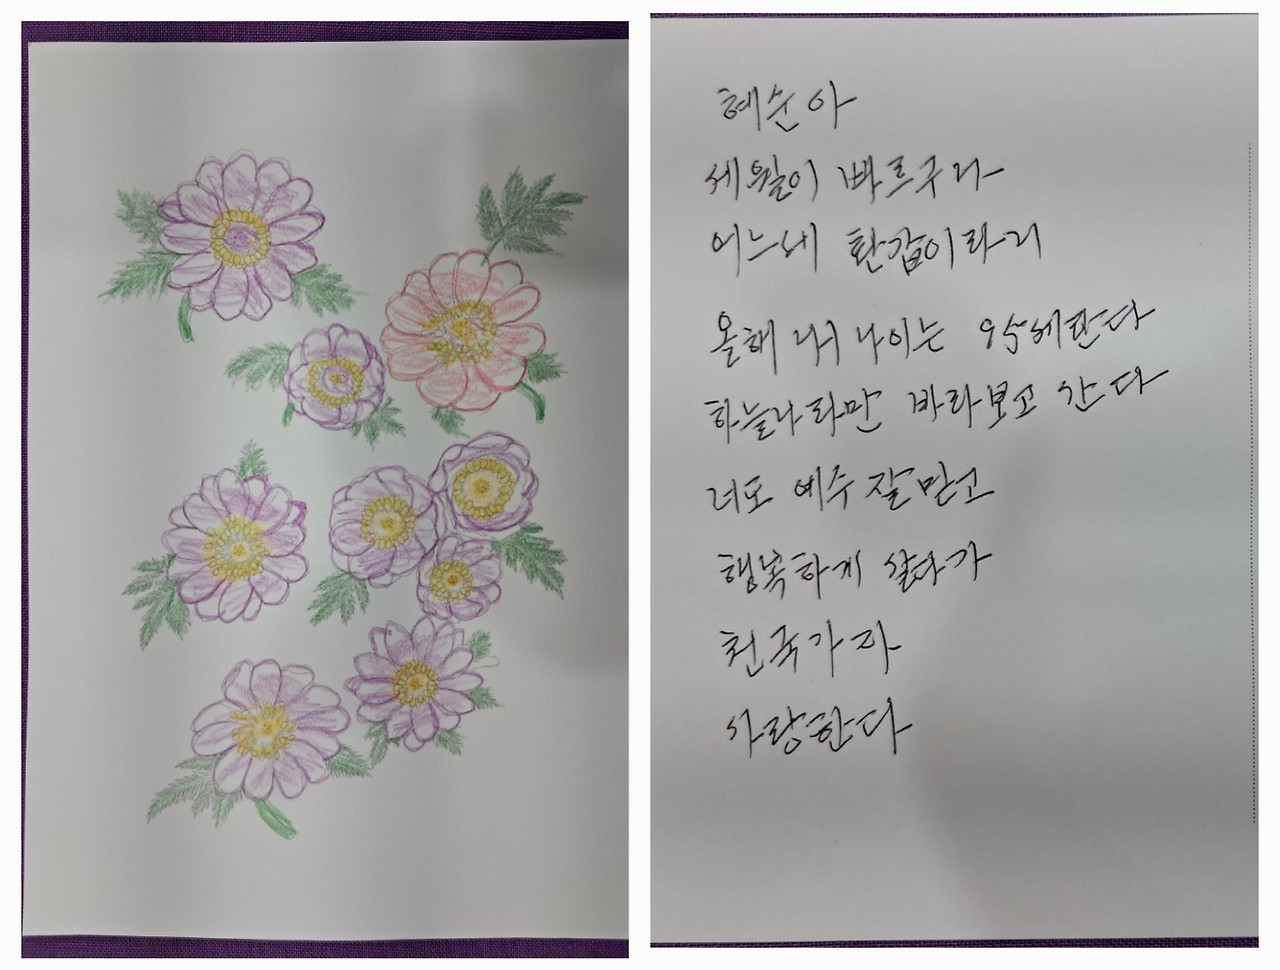 혜순아
세월이 빠르구나
어느세 환갑이라니
올해 내 나이는 95세란다
하늘나라만 바라보고 간다
너도 예수 잘 믿고
행복하게 살다가
천국가자
사랑한다